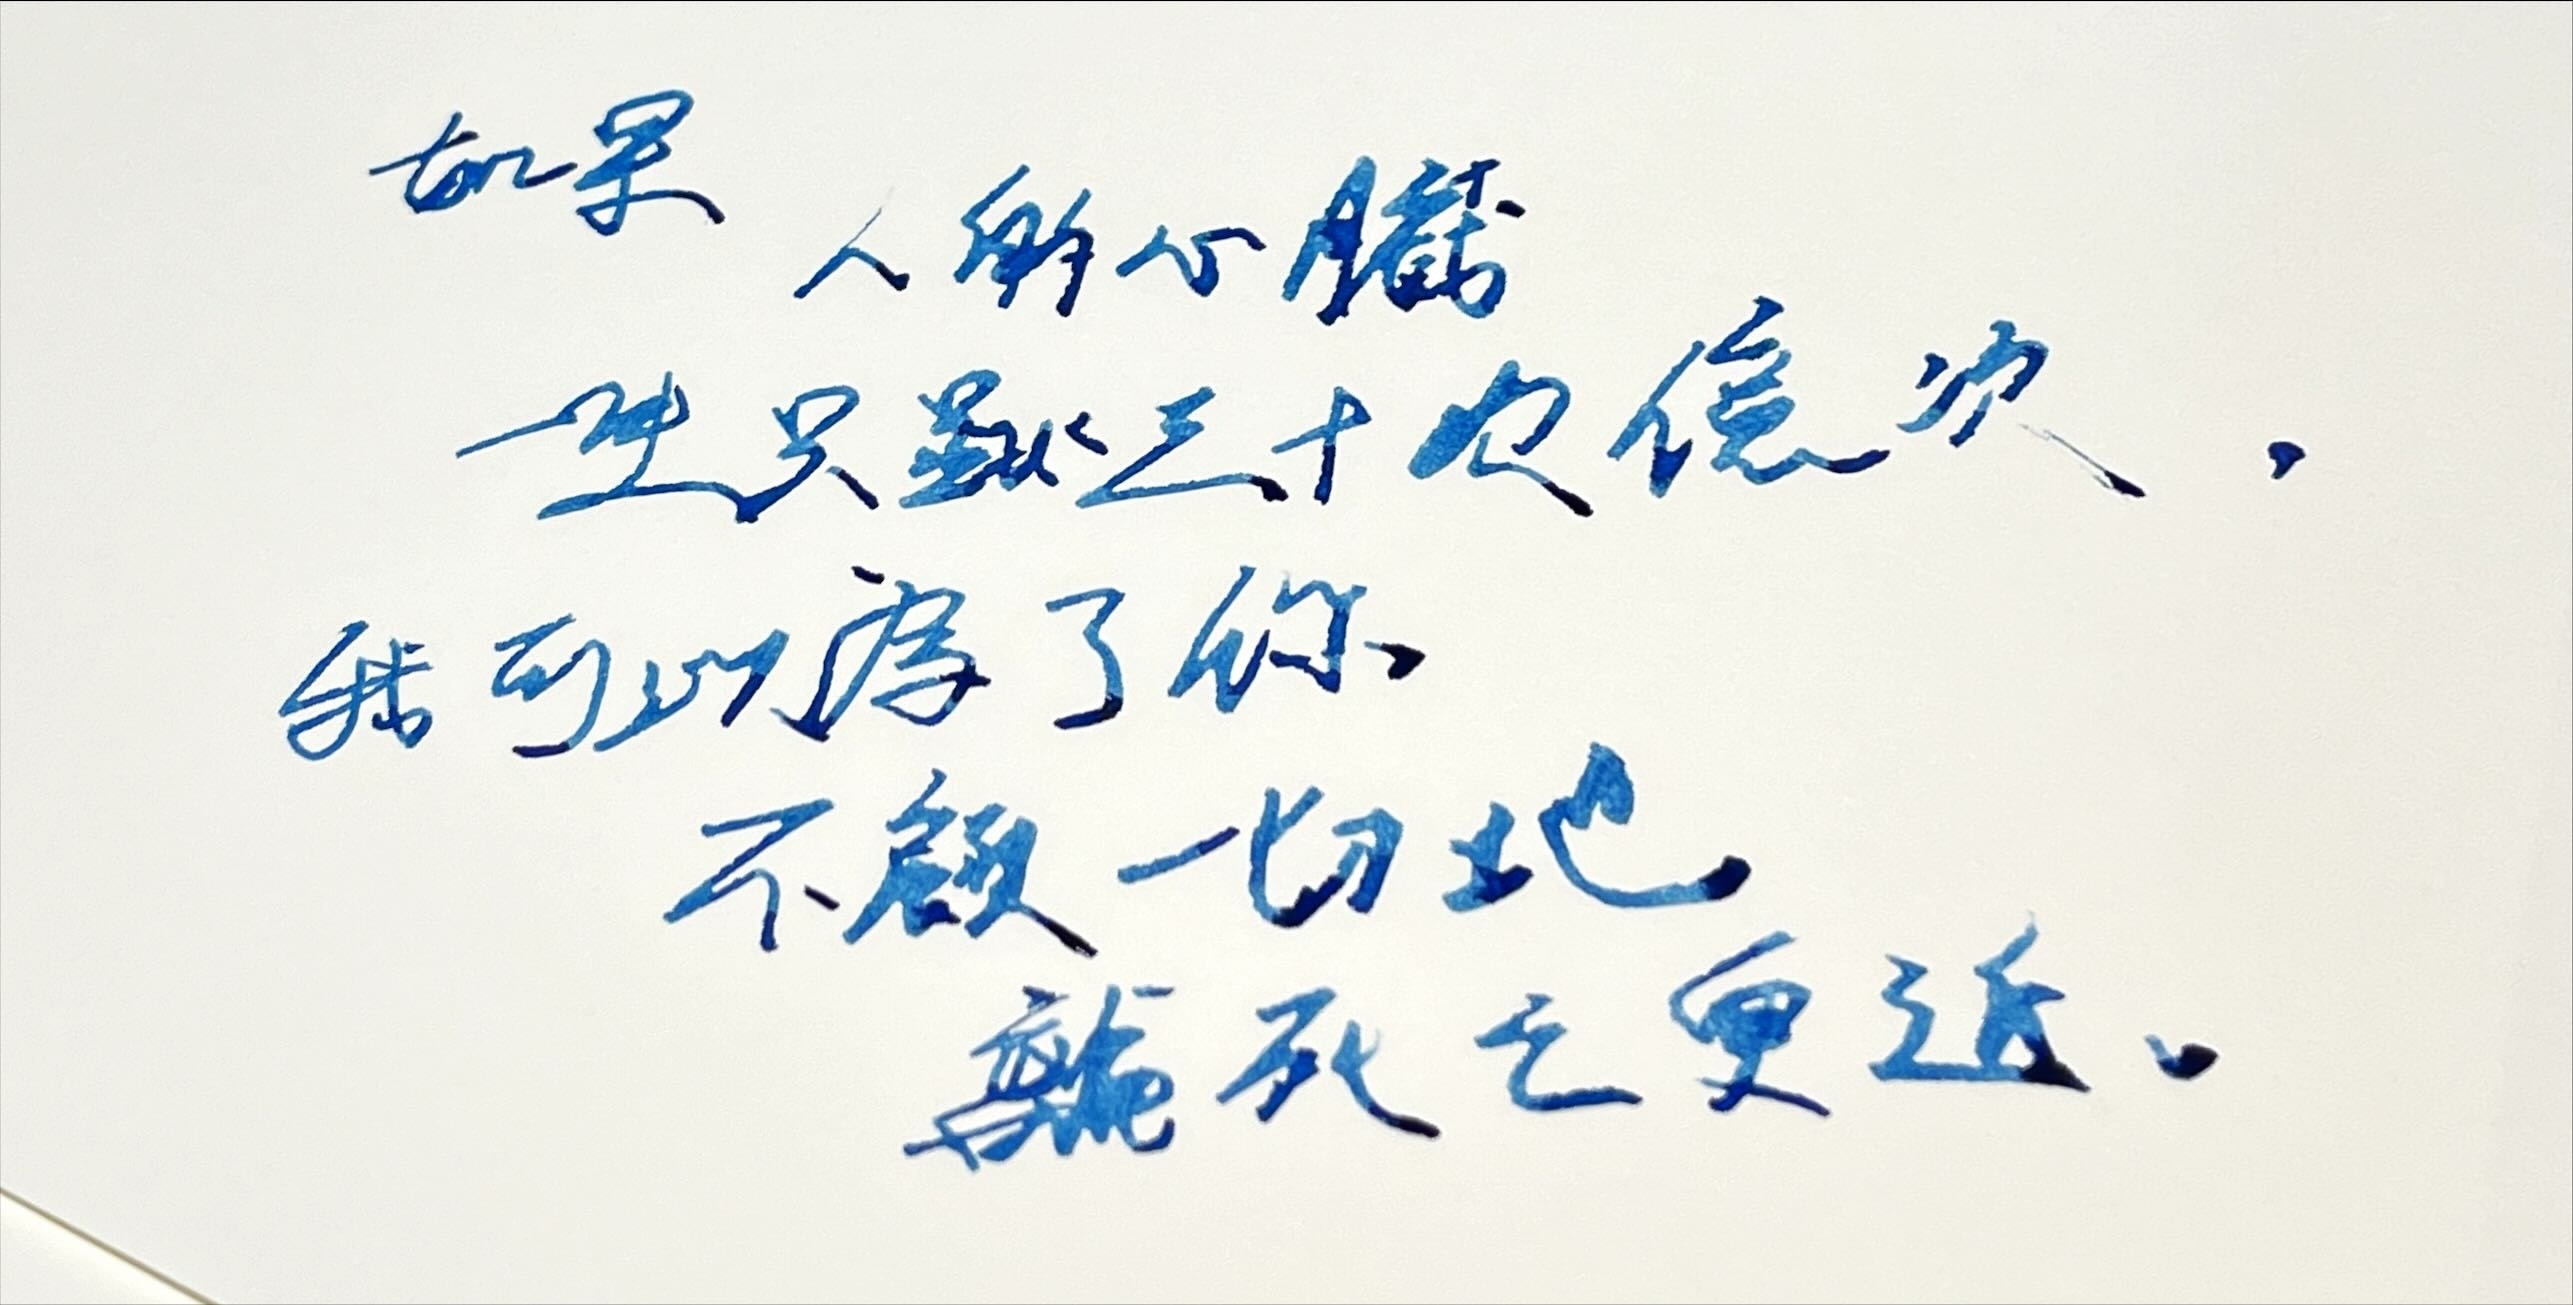 如果
人的心臟
一生只跳三十次億次，
我可以為了你
不顧一切地
離死亡更近。